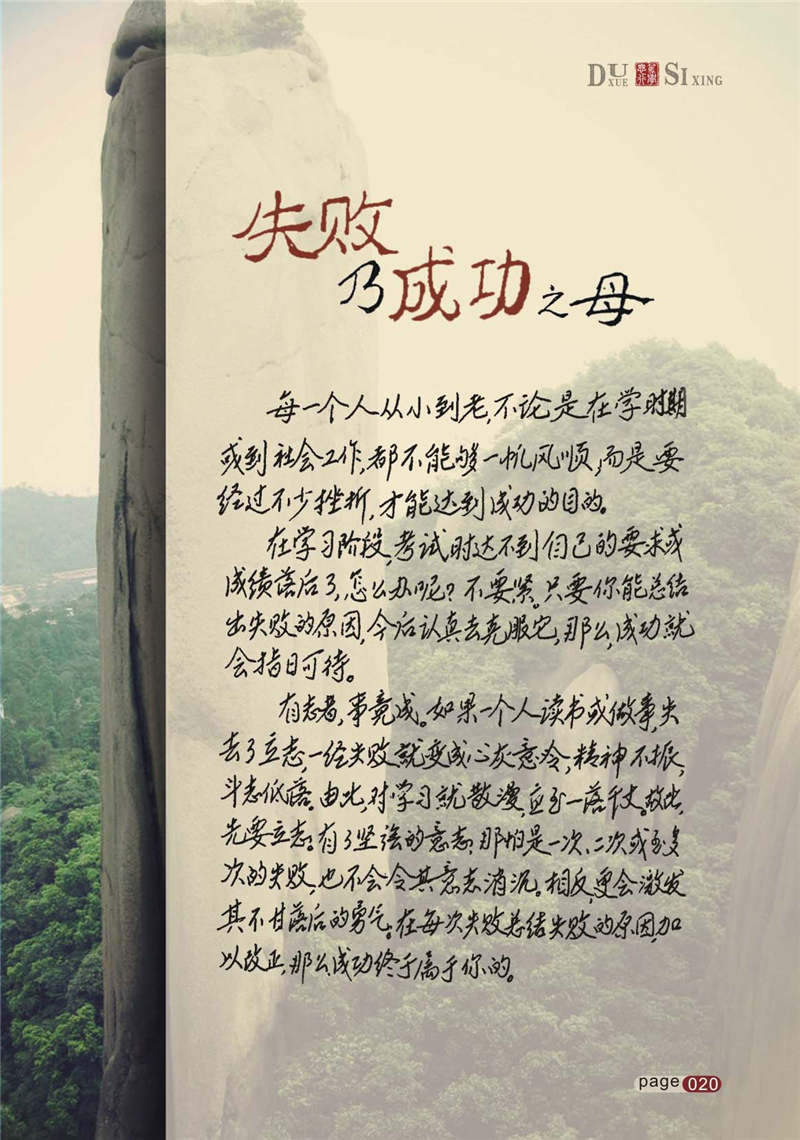 DUXUE SIXING
失败
乃成功之母
每一个人从小到老,不论是在学时期
或到社会工作,都不能够一帆风顺,而是要
经过不少挫折,才能达到成功的目的。
在学习阶段,考试时达不到自己的要求或
成绩落后了,怎么办呢?不要紧。只要你能总结
出失败的原因,今后认真去克服它,那么,成功就
会指日可待。
有志者,事竟成。如果一个人读书或做事,失
去了立志,一经失败就变成心灰意冷,精神不振,
斗志低落。由此,对学习就散漫,应至一落千丈。故此,
先要立志。有了坚强的意志,那怕是一次、二次或至多
次的失败,也不会令其意志消沉。相反,更会激发
其不甘落后的勇气。在每次失败总结失败的原因,加
以改正,那么成功终于属于你的。
page 020